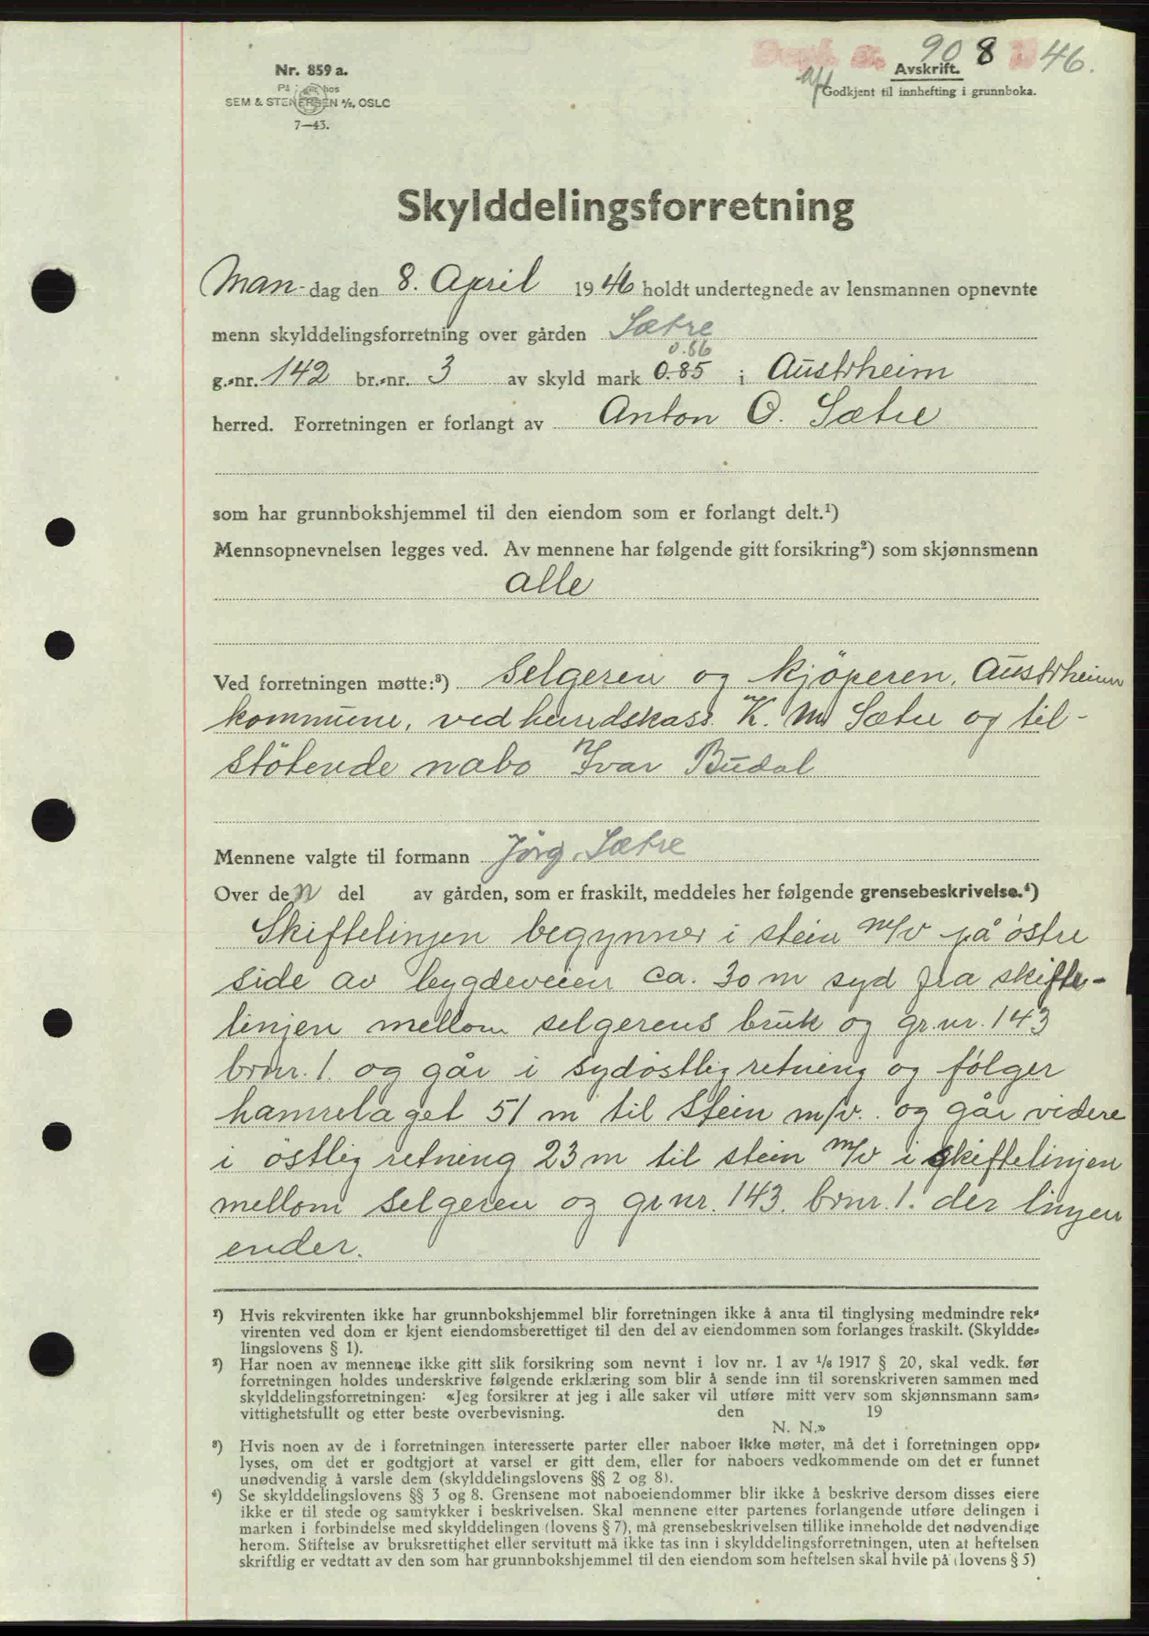 908 1946.
Nr. 859 a.
Avskrift.
Godkjent til innhefting i grunnboka.
SEM & STENERSEN A/S, OSLO
7—43.
Skylddelingsforretning
Man- dag den 8. April 1946 holdt undertegnede av lensmannen opnevnte
menn skylddelingsforretning over gården Sætre
0.86
g.-nr. 142 br.-nr. 3 av skyld mark 0.85 i Austrheim
herred. Forretningen er forlangt av Anton O. Sætre
som har grunnbokshjemmel til den eiendom som er forlangt delt.¹)
Mennsopnevnelsen legges ved. Av mennene har følgende gitt forsikring²) som skjønnsmenn
alle
Ved forretningen møtte:³) Selgeren og kjöperen, Austrheim
kommune, ved herredskass. K. M. Sætre og til-
støtende nabo Ivar Budal
Mennene valgte til formann Jörg. Sætre
Over den del av gården, som er fraskilt, meddeles her følgende grensebeskrivelse.⁴)
Skiftelinjen begynner i stein m/v på östre
side av bygdeveien ca. 30 m syd fra skifte-
linjen mellom selgerens bruk og gr.nr. 143
brnr. 1. og går i sydöstlig retning og fölger
hamrelaget 51 m til Stein m/v. og går videre
i östlig retning 23 m til stein m/v i skiftelinjen
mellom selgeren og gr nr. 143. brnr. 1. der linjen
ender.
¹) Hvis rekvirenten ikke har grunnbokshjemmel blir forretningen ikke å anta til tinglysing medmindre rek-
virenten ved dom er kjent eiendomsberettiget til den del av eiendommen som forlanges fraskilt. (Skyldde-
lingslovens § 1).
²) Har noen av mennene ikke gitt slik forsikring som nevnt i lov nr. 1 av 1/6 1917 § 20, skal vedk. før
forretningen holdes underskrive følgende erklæring som blir å sende inn til sorenskriveren sammen med
skylddelingsforretningen: «Jeg forsikrer at jeg i alle saker vil utføre mitt verv som skjønnsmann sam-
vittighetsfullt og etter beste overbevisning. den 19
N. N.»
³) Hvis noen av de i forretningen interesserte parter eller naboer ikke møter, må det i forretningen opp-
lyses, om det er godtgjort at varsel er gitt dem, eller for naboers vedkommende om det er funnet
unødvendig å varsle dem (skylddelingslovens §§ 2 og 8).
⁴) Se skylddelingslovens §§ 3 og 8. Grensene mot naboeiendommer blir ikke å beskrive dersom disses eiere
ikke er til stede og samtykker i beskrivelsen. Skal mennene etter partenes forlangende utføre delingen i
marken i forbindelse med skylddelingen (lovens § 7), må grensebeskrivelsen tillike inneholde det nødvendige
herom. Stiftelse av bruksrettighet eller servitutt må ikke tas inn i skylddelingsforretningen, uten at heftelsen
skriftlig er vedtatt av den som har grunnbokshjemmel til den eiendom som heftelsen skal hvile på (lovens § 5)